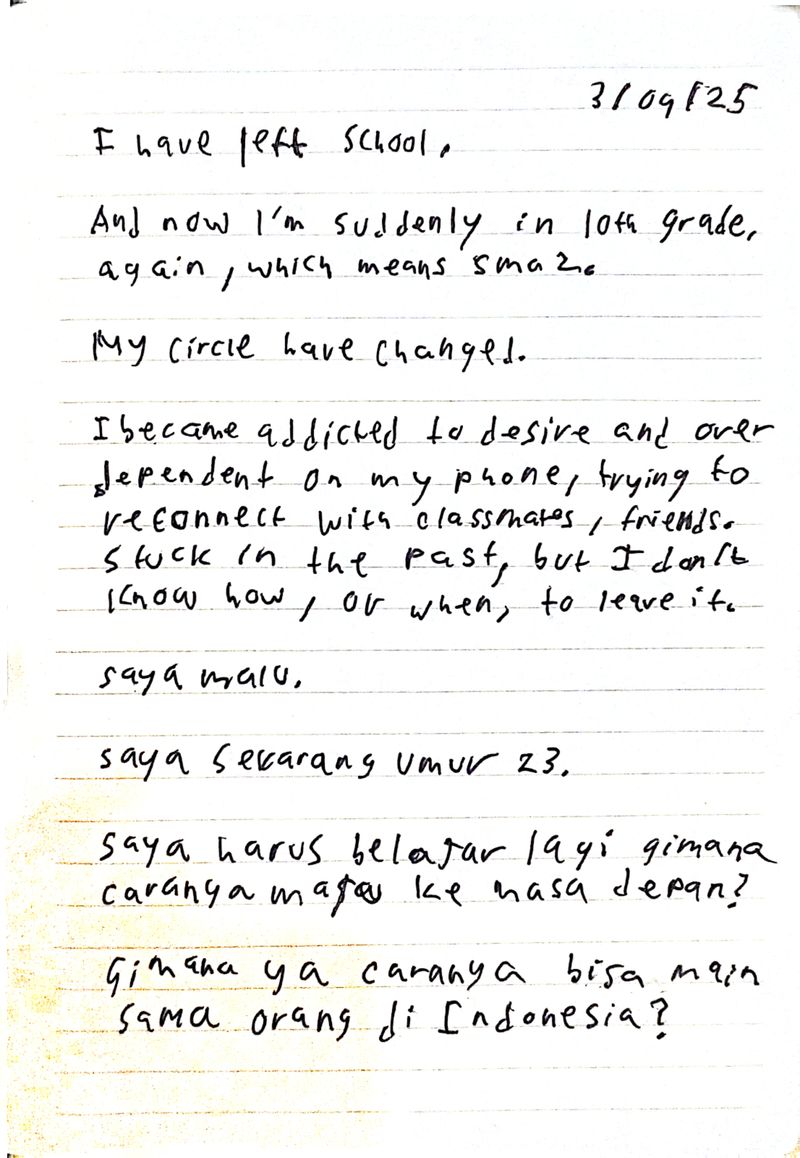 3/09/25
I have left school.
And now I'm suddenly in 10th grade,
again, which means sma 2.
My circle have changed.
I became addicted to desire and over
dependent on my phone, trying to
reconnect with classmates, friends.
stuck in the past, but I don't
know how, or when, to leave it.
saya malu.
saya sekarang umur 23.
saya harus belajar lagi gimana
caranya maju ke masa depan?
Gimana ya caranya bisa main
sama orang di Indonesia?